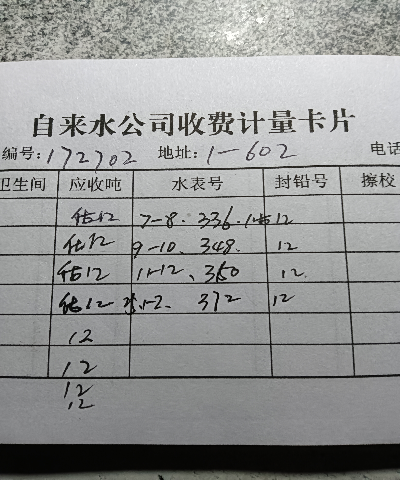 自来水公司收费计量卡片
编号:172702 地址:1-602 电话
卫生间 应收吨 水表号 封铅号 擦校
估12 7-8. 336. 12
估12 9-10、348. 12
估12 11-12、360 12
估12 1-2. 372 12
12
12
12
12